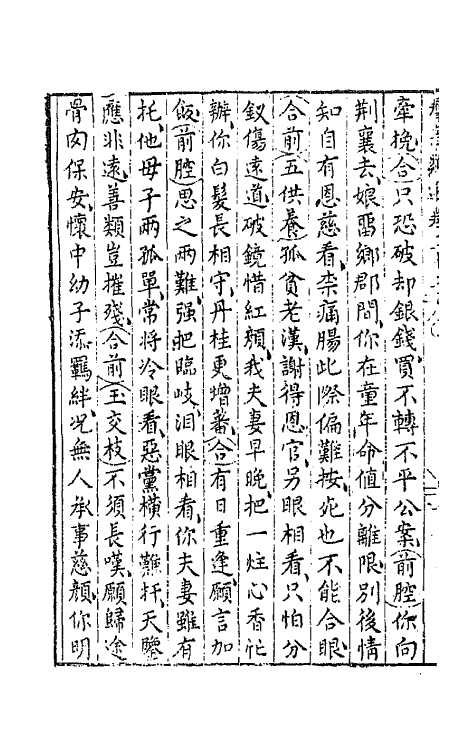 牽挽合只恐破却銀錢買不轉不平公案前腔你向
荆襄去娘畱鄉郡間你在童年命值分離限別後情
知自有恩慈看柰痛腸此際偏難按死也不能合眼
合前五供養孤貧老漢謝得恩官另眼相看只怕分
釵傷遠道破鏡惜紅顏我夫妻早晚把一炷心香忙
辦你白髮長相守丹桂更增蕃合有日重逢願言加
飯前腔思之兩難强把臨岐淚眼相看你夫妻雖有
托他母子兩孤單常將冷眼看惡黨橫行難扞天鑒
應非遠善類豈摧殘合前玉交枝不須長嘆願歸途
骨肉保安懷中幼子添羈絆况無人承事慈顏你明